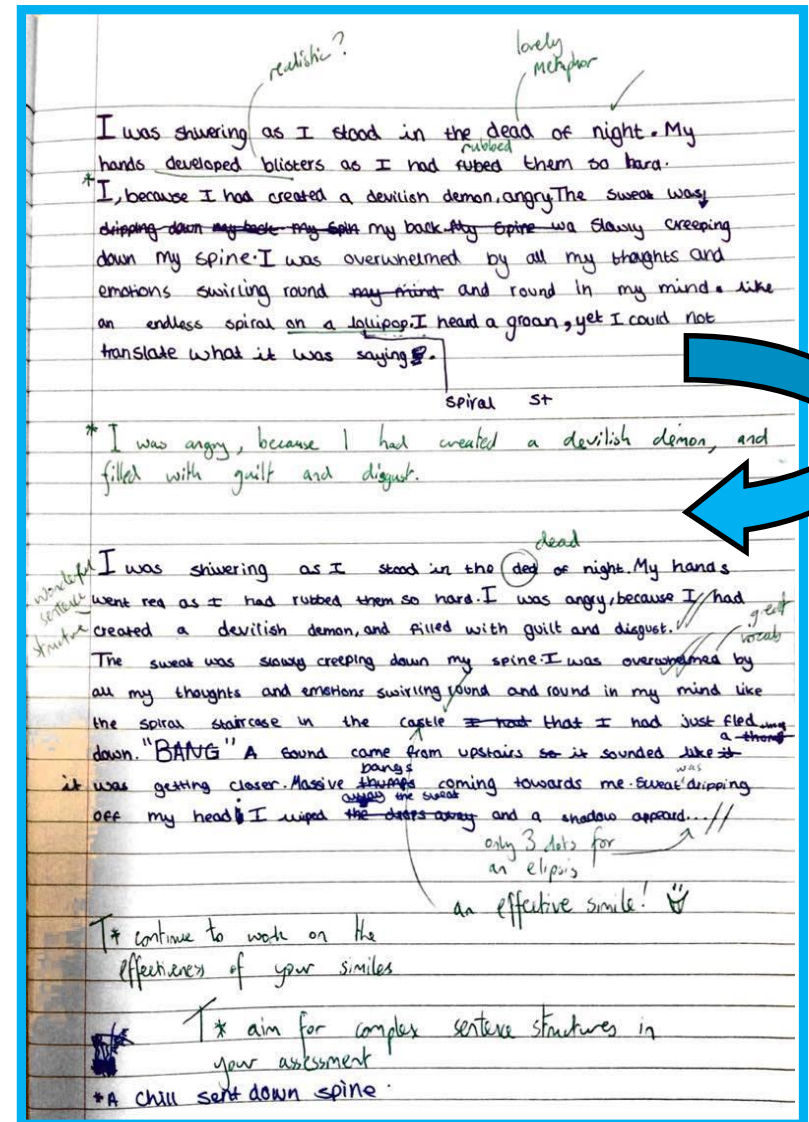 realistic?
lovely
metaphor
I was shivering as I stood in the dead of night. My
rubbed
hands developed blisters as I had rubed them so hard.
*I, because I had created a devilish demon, angry The sweat was
dripping down my back my spin my back My spine wa slowly creeping
down my spine. I was overwhelmed by all my thoughts and
emotions swirling round my mind and round in my mind. like
an endless spiral on a lollipop. I heard a groan, yet I could not
translate what it was saying.
spiral st
* I was angry, because I had created a devilish demon, and
filled with guilt and disgust.
dead
I was shivering as I stood in the ded of night. My hands
wonderful
sentence
structure
went red as I had rubbed them so hard. I was angry, because I had
created a devilish demon, and filled with guilt and disgust.
great
vocab
The sweat was slowly creeping down my spine. I was overwhelmed by
all my thoughts and emotions swirling round and round in my mind like
the spiral staircase in the castle I had that I had just fled
down. "BANG" A sound came from upstairs so it sounded like it
bangs
was
it was getting closer. Massive thumps coming towards me. Sweat dripping
away the sweat
off my head I wiped the drops away and a shadow appeard...
only 3 dots for
an elipsis
an effective simile!
T* continue to work on the
effectiveness of your similes
T* aim for complex sentence structures in
your assessment
*A chill sent down spine.